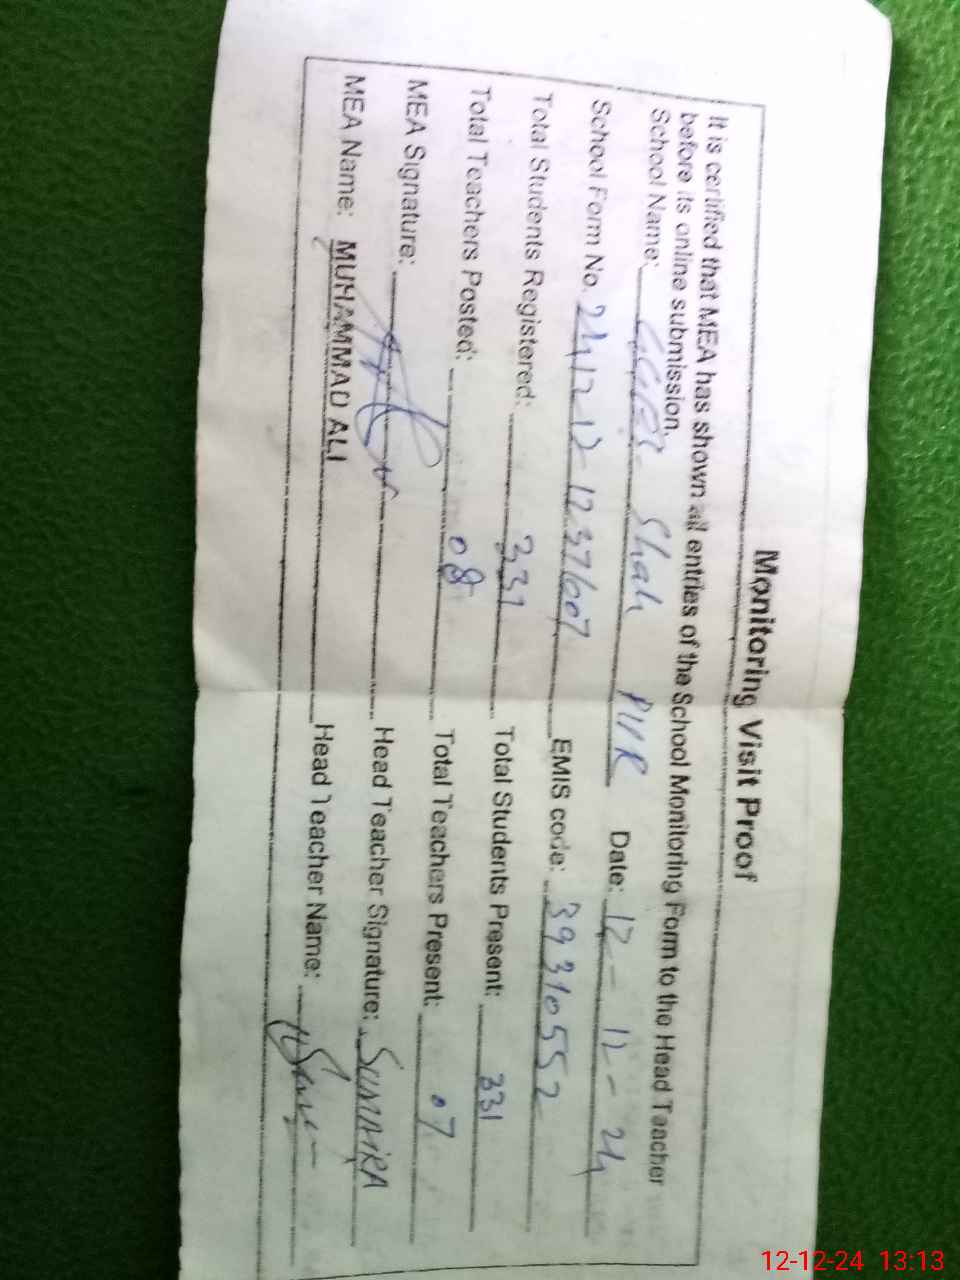 Monitoring Visit Proof
It is certified that MEA has shown all entries of the School Monitoring Form to the Head Teacher
before its online submission.
School Name: Shah PUR Date: 12-12-24
School Form No. 241212-1237607 EMIS code: 39310552
Total Students Registered: 331 Total Students Present: 331
Total Teachers Posted: 08 Total Teachers Present: 07
MEA Signature: Head Teacher Signature: SUMAIRA
MEA Name: MUHAMMAD ALI Head Teacher Name:
12-12-24 13:13